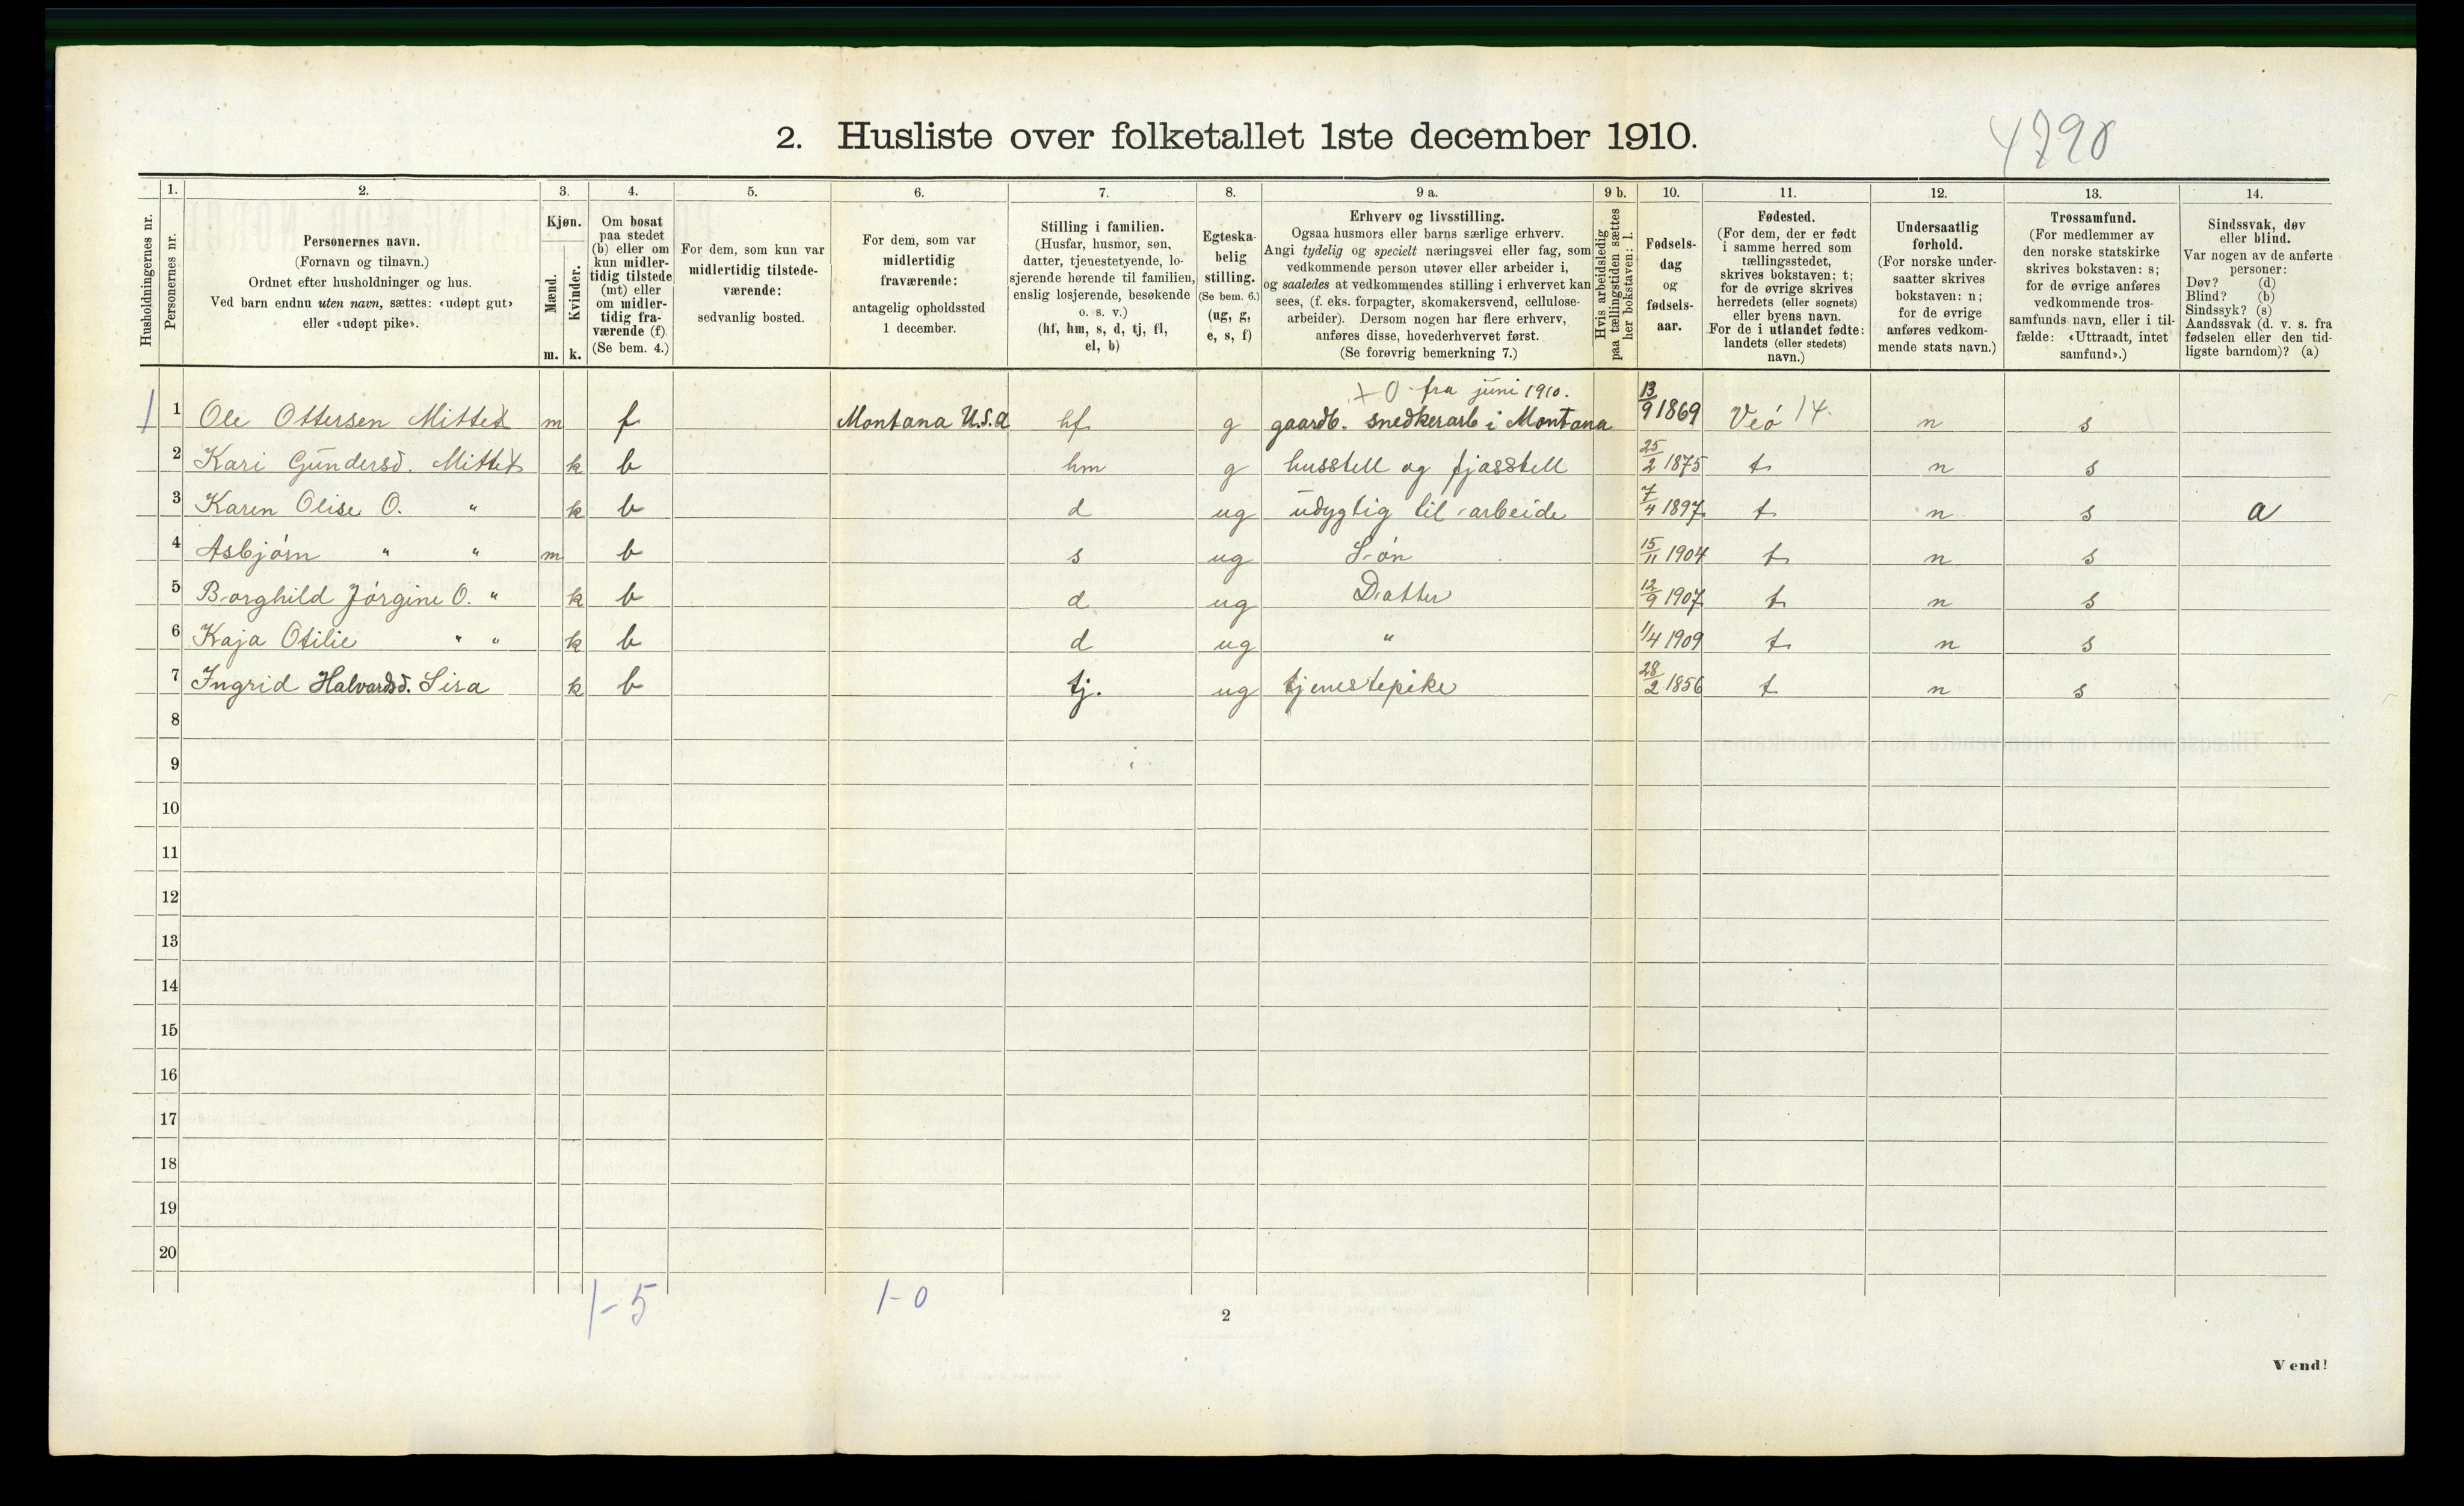 4790
2. Husliste over folketallet 1ste december 1910.
1. 2. 3. 4. 5. 6. 7. 8. 9 a. 9 b. 10. 11. 12. 13. 14.
Husholdningernes nr.
Personernes nr.
Personernes navn.
(Fornavn og tilnavn.)
Ordnet efter husholdninger og hus.
Ved barn endnu uten navn, sættes: «udøpt gut»
eller «udøpt pike».
Kjøn.
Mænd.
Kvinder.
m. k.
Om bosat
paa stedet
(b) eller om
kun midler-
tidig tilstede
(mt) eller
om midler-
tidig fra-
værende (f).
(Se bem. 4.)
For dem, som kun var
midlertidig tilstede-
værende:
sedvanlig bosted.
For dem, som var
midlertidig
fraværende:
antagelig opholdssted
1 december.
Stilling i familien.
(Husfar, husmor, søn,
datter, tjenestetyende, lo-
sjerende hørende til familien,
enslig losjerende, besøkende
o. s. v.)
(hf, hm, s, d, tj, fl,
el, b)
Egteska-
belig
stilling.
(Se bem. 6.)
(ug, g,
e, s, f)
Erhverv og livsstilling.
Ogsaa husmors eller barns særlige erhverv.
Angi tydelig og specielt næringsvei eller fag, som
vedkommende person utøver eller arbeider i,
og saaledes at vedkommendes stilling i erhvervet kan
sees, (f. eks. forpagter, skomakersvend, cellulose-
arbeider). Dersom nogen har flere erhverv,
anføres disse, hovederhvervet først.
(Se forøvrig bemerkning 7.)
Hvis arbeidsledig
paa tællingstiden sættes
her bokstaven: l.
Fødsels-
dag
og
fødsels-
aar.
Fødested.
(For dem, der er født
i samme herred som
tællingsstedet,
skrives bokstaven: t;
for de øvrige skrives
herredets (eller sognets)
eller byens navn.
For de i utlandet fødte:
landets (eller stedets)
navn.)
Undersaatlig
forhold.
(For norske under-
saatter skrives
bokstaven: n;
for de øvrige
anføres vedkom-
mende stats navn.)
Trossamfund.
(For medlemmer av
den norske statskirke
skrives bokstaven: s;
for de øvrige anføres
vedkommende tros-
samfunds navn, eller i til-
fælde: «Uttraadt, intet
samfund».)
Sindssvak, døv
eller blind.
Var nogen av de anførte
personer:
Døv? (d)
Blind? (b)
Sindssyk? (s)
Aandssvak (d. v. s. fra
fødselen eller den tid-
ligste barndom)? (a)
+ 0 fra juni 1910.
1 1 Ole Ottersen Mittet m f Montana U.S.A hf g gaardb. snedkerarb i Montana 13/9 1869 Veø 14. n s
2 Kari Gundersd. Mittet k b hm g husstell og fjøsstell 25/2 1875 t n s
3 Karen Olise O. " k b d ug udygtig til arbeide 7/4 1897 t n s a
4 Asbjørn " " m b s ug Søn 15/11 1904 t n s
5 Borghild Jørgine O. " k b d ug Datter 12/9 1907 t n s
6 Kaja Otilie " " k b d ug " 1/4 1909 t n s
7 Ingrid Halvardsd. Lisa k b tj. ug tjenestepike 28/2 1856 t n s
8
9
10
11
12
13
14
15
16
17
18
19
20
1-5 1-0
2
Vend!